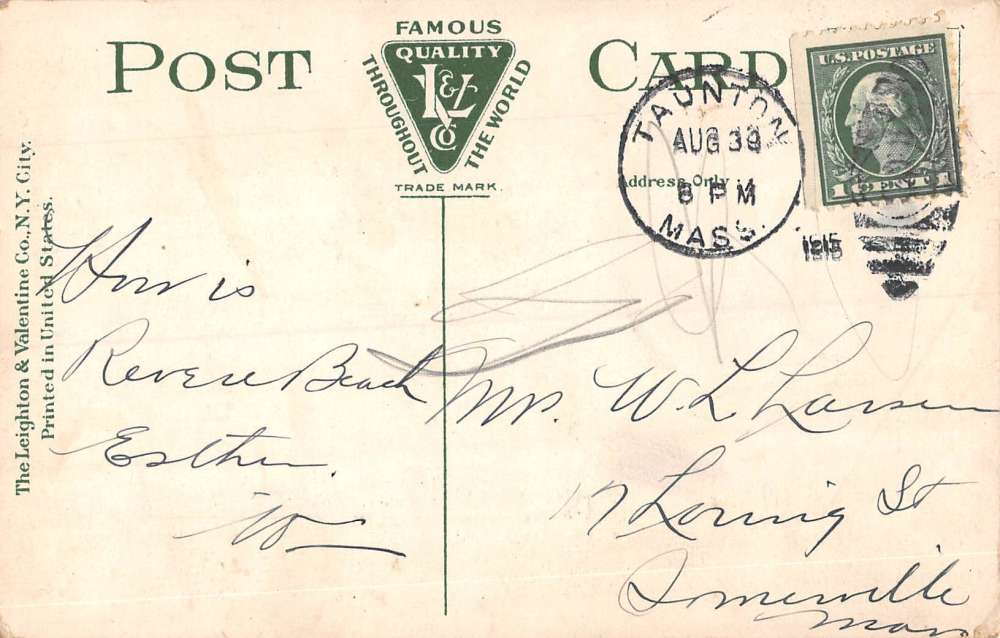 POST CARD
FAMOUS
QUALITY
THROUGHOUT
THE WORLD
L & V
Co
TRADE MARK.
U.S. POSTAGE
1 CENT 1
TAUNTON
AUG 39
8 PM
MASS.
1915
Address Only
The Leighton & Valentine Co., N.Y. City.
Printed in United States.
How is
Revere Beach
Esther.
W
Mrs. W. L. Larsen
17 Loring St
Somerville
Mass